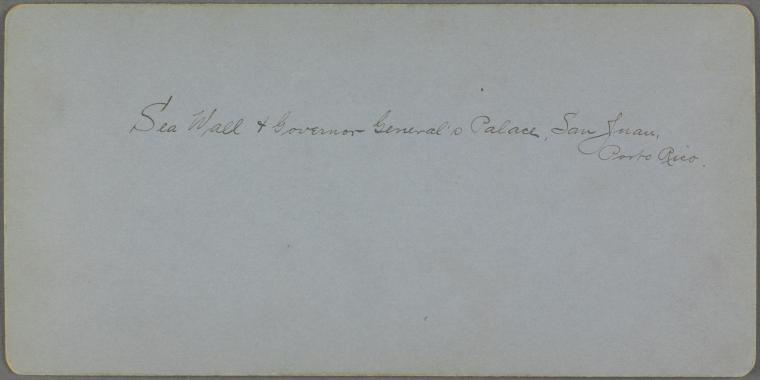 Sea Wall & Governor General's Palace, San Juan,
Porto Rico.